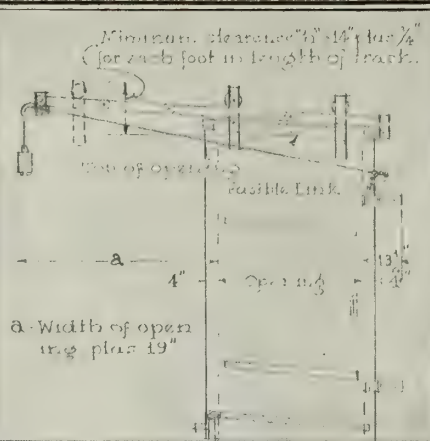 Minimum clearance "b"-14" plus ¾"
for each foot in length of track.
Top of opening
Fusible Link
a
13½"
4"
Opening
4"
a-Width of open
ing plus 19"